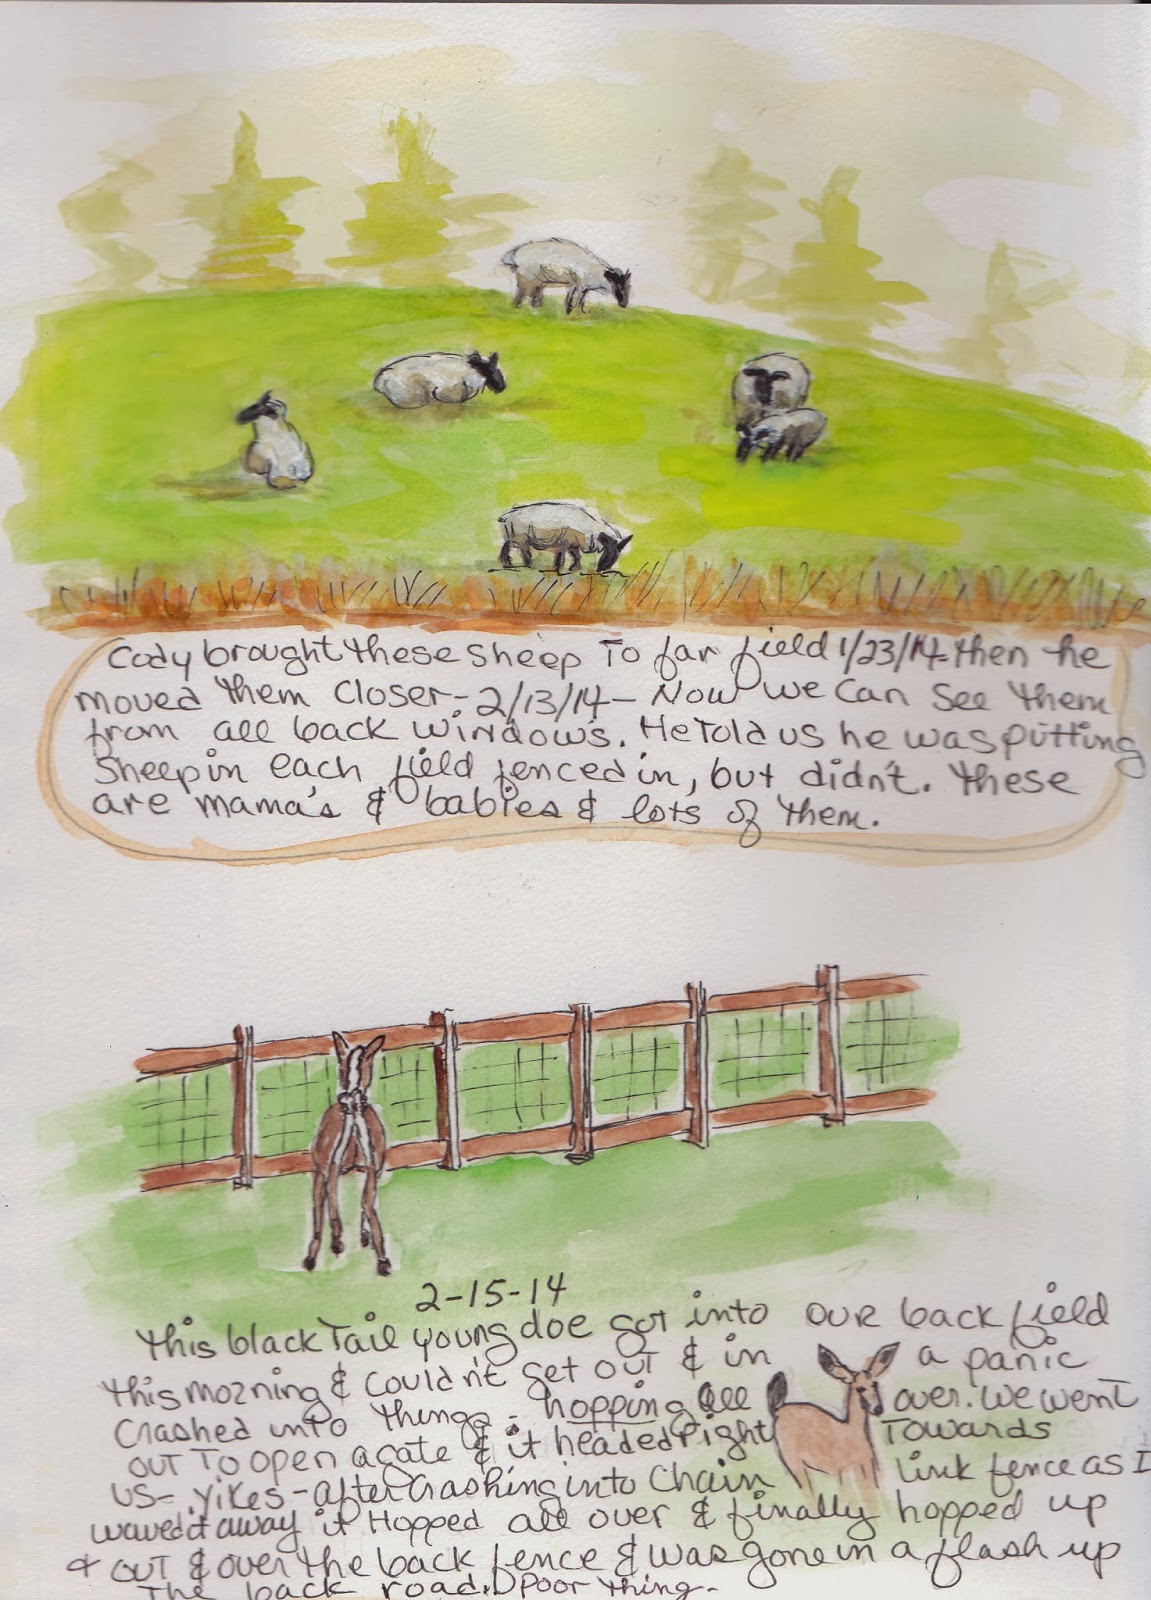 Cody brought these sheep to far field 1/23/14 - then he
moved them closer - 2/13/14 - Now we can see them
from all back windows. He told us he was putting
sheep in each field fenced in, but didn't. These
are mama's & babies & lots of them.
2-15-14
This black tail young doe got into our back field
this morning & couldn't get out & in a panic
crashed into things - hopping all over. We went
out to open a gate & it headed right towards
us - yikes - after crashing into chain link fence as I
waved it away it hopped all over & finally hopped up
& out & over the back fence & was gone in a flash up
the back road. Poor thing.